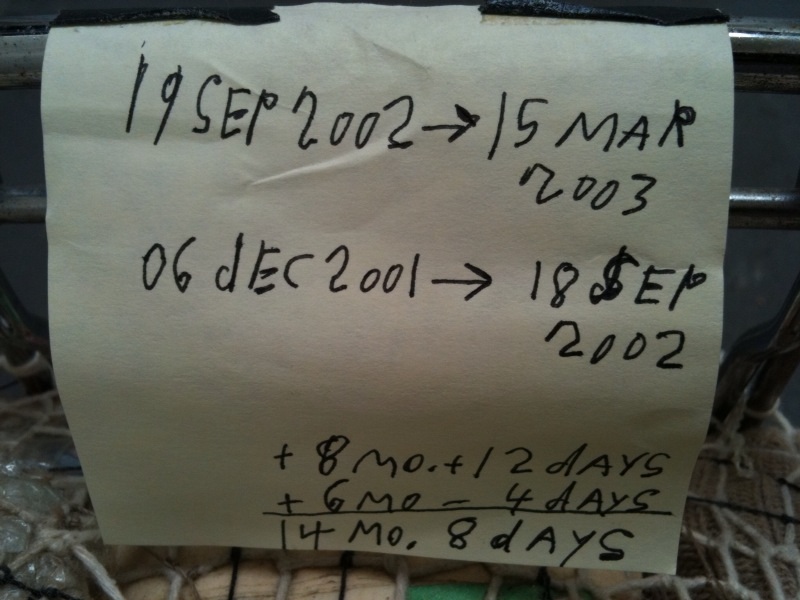 19 SEP 2002 → 15 MAR
2003
06 dEC 2001 → 18 SEP
2002
+ 8 MO. + 12 dAYS
+ 6 MO - 4 dAYS
14 MO. 8 dAYS